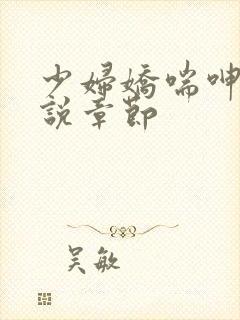 少婦嬌喘呻
說章節
吳敏